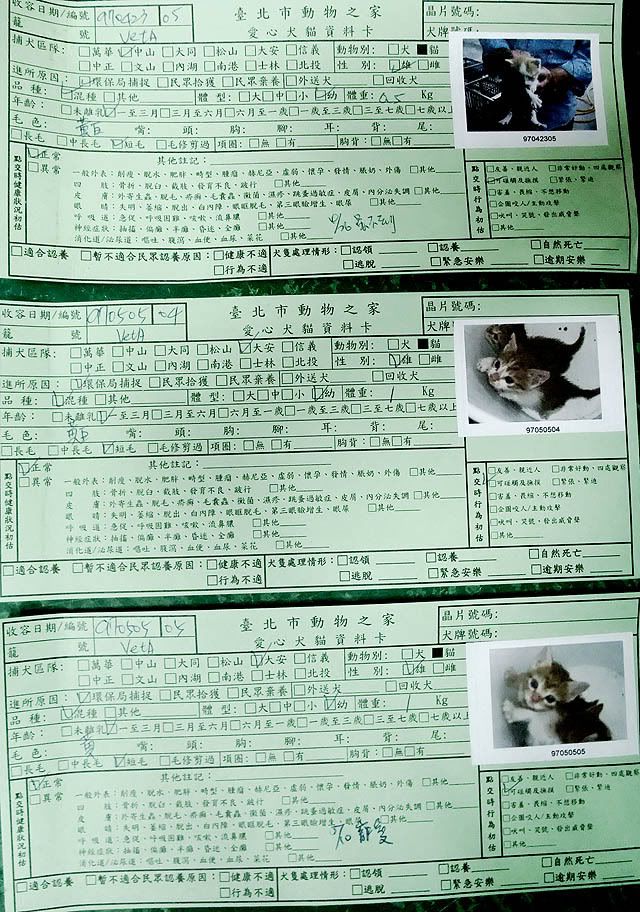 收容日期/編號 970423 05 臺北市動物之家 晶片號碼:
籠 號 VetA 愛心犬貓資料卡
捕犬區隊: □萬華 ☑中山 □大同 □松山 □大安 □信義 動物別: □犬 ■貓
□中正 □文山 □內湖 □南港 □士林 □北投 性 別: ☑雄 □雌
進所原因: ☑環保局捕捉 □民眾拾獲 □民眾棄養 □外送犬 □回收犬
品 種: ☑混種 □其他 體 型: □大 □中 □小 ☑幼 體重: 0.5 Kg
年齡: □未離乳 ☑一至三月 □三至六月 □六月至一歲 □一至三歲 □三至七歲 □七歲以上
毛 色: 黃白 嘴: 頭: 胸: 腳: 耳: 背: 尾:
□長毛 □中長毛 ☑短毛 □毛修剪過 項圈: □無 □有 胸背: □無 □有
97042305
點交時健康狀況初估 ☑正常 其他註記:
□異常 一般外表: 削瘦、脫水、肥胖、畸型、腫瘤、赫尼亞、虛弱、懷孕、發情、脹奶、外傷 □其他
四 肢: 骨折、脫臼、截肢、發育不良、跛行 □其他
皮 膚: 外寄生蟲、脫毛、疥癬、毛囊蟲、黴菌、濕疹、跳蚤過敏症、皮屑、內分泌失調 □其他
眼 睛: 失明、萎縮、脫出、白內障、眼瞼脫毛、第三眼瞼增生、眼屎 □其他
呼 吸 道: 急促、呼吸困難、咳嗽、流鼻膿 □其他
神經症狀: 抽搐、偏癱、半癱、昏迷、全癱 □其他
消化道/泌尿道: 嘔吐、腹瀉、血便、血尿、菜花 □其他
點交時行為初估 □友善、親近人 □非常好動、四處觀察
☑可碰觸及撫摸 □緊張、緊迫
□害羞、畏縮、不想移動
□企圖咬人/主動攻擊
□吠叫、哭號、發出威脅聲
□其他
□適合認養 □暫不適合民眾認養原因: □健康不適 犬隻處理情形: □認領 □認養 □自然死亡
□行為不適 □逃脫 □緊急安樂 □逾期安樂
收容日期/編號 970505 04 臺北市動物之家 晶片號碼:
籠 號 VetA 愛心犬貓資料卡 犬牌號碼:
捕犬區隊: □萬華 □中山 □大同 □松山 ☑大安 □信義 動物別: □犬 □貓
□中正 □文山 □內湖 □南港 □士林 □北投 性 別: ☑雄 □雌
進所原因: ☑環保局捕捉 □民眾拾獲 □民眾棄養 □外送犬 □回收犬
品 種: ☑混種 □其他 體 型: □大 □中 □小 ☑幼 體重: 1 Kg
年齡: □未離乳 ☑一至三月 □三至六月 □六月至一歲 □一至三歲 □三至七歲 □七歲以上
毛 色: 嘴: 頭: 胸: 腳: 耳: 背: 尾:
□長毛 □中長毛 ☑短毛 □毛修剪過 項圈: □無 □有 胸背: □無 □有
97050504
點交時健康狀況初估 ☑正常 其他註記:
□異常 一般外表: 削瘦、脫水、肥胖、畸型、腫瘤、赫尼亞、虛弱、懷孕、發情、脹奶、外傷 □其他
四 肢: 骨折、脫臼、截肢、發育不良、跛行 □其他
皮 膚: 外寄生蟲、脫毛、疥癬、毛囊蟲、黴菌、濕疹、跳蚤過敏症、皮屑、內分泌失調 □其他
眼 睛: 失明、萎縮、脫出、白內障、眼瞼脫毛、第三眼瞼增生、眼屎 □其他
呼 吸 道: 急促、呼吸困難、咳嗽、流鼻膿 □其他
神經症狀: 抽搐、偏癱、半癱、昏迷、全癱 □其他
消化道/泌尿道: 嘔吐、腹瀉、血便、血尿、菜花 □其他
點交時行為初估 □友善、親近人 □非常好動、四處觀察
☑可碰觸及撫摸 □緊張、緊迫
□害羞、畏縮、不想移動
□企圖咬人/主動攻擊
□吠叫、哭號、發出威脅聲
□其他
□適合認養 □暫不適合民眾認養原因: □健康不適 犬隻處理情形: □認領 □認養 □自然死亡
□行為不適 □逃脫 □緊急安樂 □逾期安樂
收容日期/編號 970505 05 臺北市動物之家 晶片號碼:
籠 號 VetA 愛心犬貓資料卡 犬牌號碼:
捕犬區隊: □萬華 □中山 □大同 □松山 ☑大安 □信義 動物別: □犬 ■貓
□中正 □文山 □內湖 □南港 □士林 □北投 性 別: ☑雄 □雌
進所原因: ☑環保局捕捉 □民眾拾獲 □民眾棄養 □外送犬 □回收犬
品 種: ☑混種 □其他 體 型: □大 □中 □小 ☑幼 體重: 1 Kg
年齡: □未離乳 ☑一至三月 □三至六月 □六月至一歲 □一至三歲 □三至七歲 □七歲以上
毛 色: 黃 嘴: 頭: 胸: 腳: 耳: 背: 尾:
□長毛 □中長毛 ☑短毛 □毛修剪過 項圈: □無 □有 胸背: □無 □有
97050505
點交時健康狀況初估 ☑正常 其他註記:
□異常 一般外表: 削瘦、脫水、肥胖、畸型、腫瘤、赫尼亞、虛弱、懷孕、發情、脹奶、外傷 □其他
四 肢: 骨折、脫臼、截肢、發育不良、跛行 □其他
皮 膚: 外寄生蟲、脫毛、疥癬、毛囊蟲、黴菌、濕疹、跳蚤過敏症、皮屑、內分泌失調 □其他
眼 睛: 失明、萎縮、脫出、白內障、眼瞼脫毛、第三眼瞼增生、眼屎 □其他
呼 吸 道: 急促、呼吸困難、咳嗽、流鼻膿 □其他
神經症狀: 抽搐、偏癱、半癱、昏迷、全癱 □其他
消化道/泌尿道: 嘔吐、腹瀉、血便、血尿、菜花 □其他
點交時行為初估 □友善、親近人 □非常好動、四處觀察
☑可碰觸及撫摸 □緊張、緊迫
□害羞、畏縮、不想移動
□企圖咬人/主動攻擊
□吠叫、哭號、發出威脅聲
□其他
□適合認養 □暫不適合民眾認養原因: □健康不適 犬隻處理情形: □認領 □認養 □自然死亡
□行為不適 □逃脫 □緊急安樂 □逾期安樂